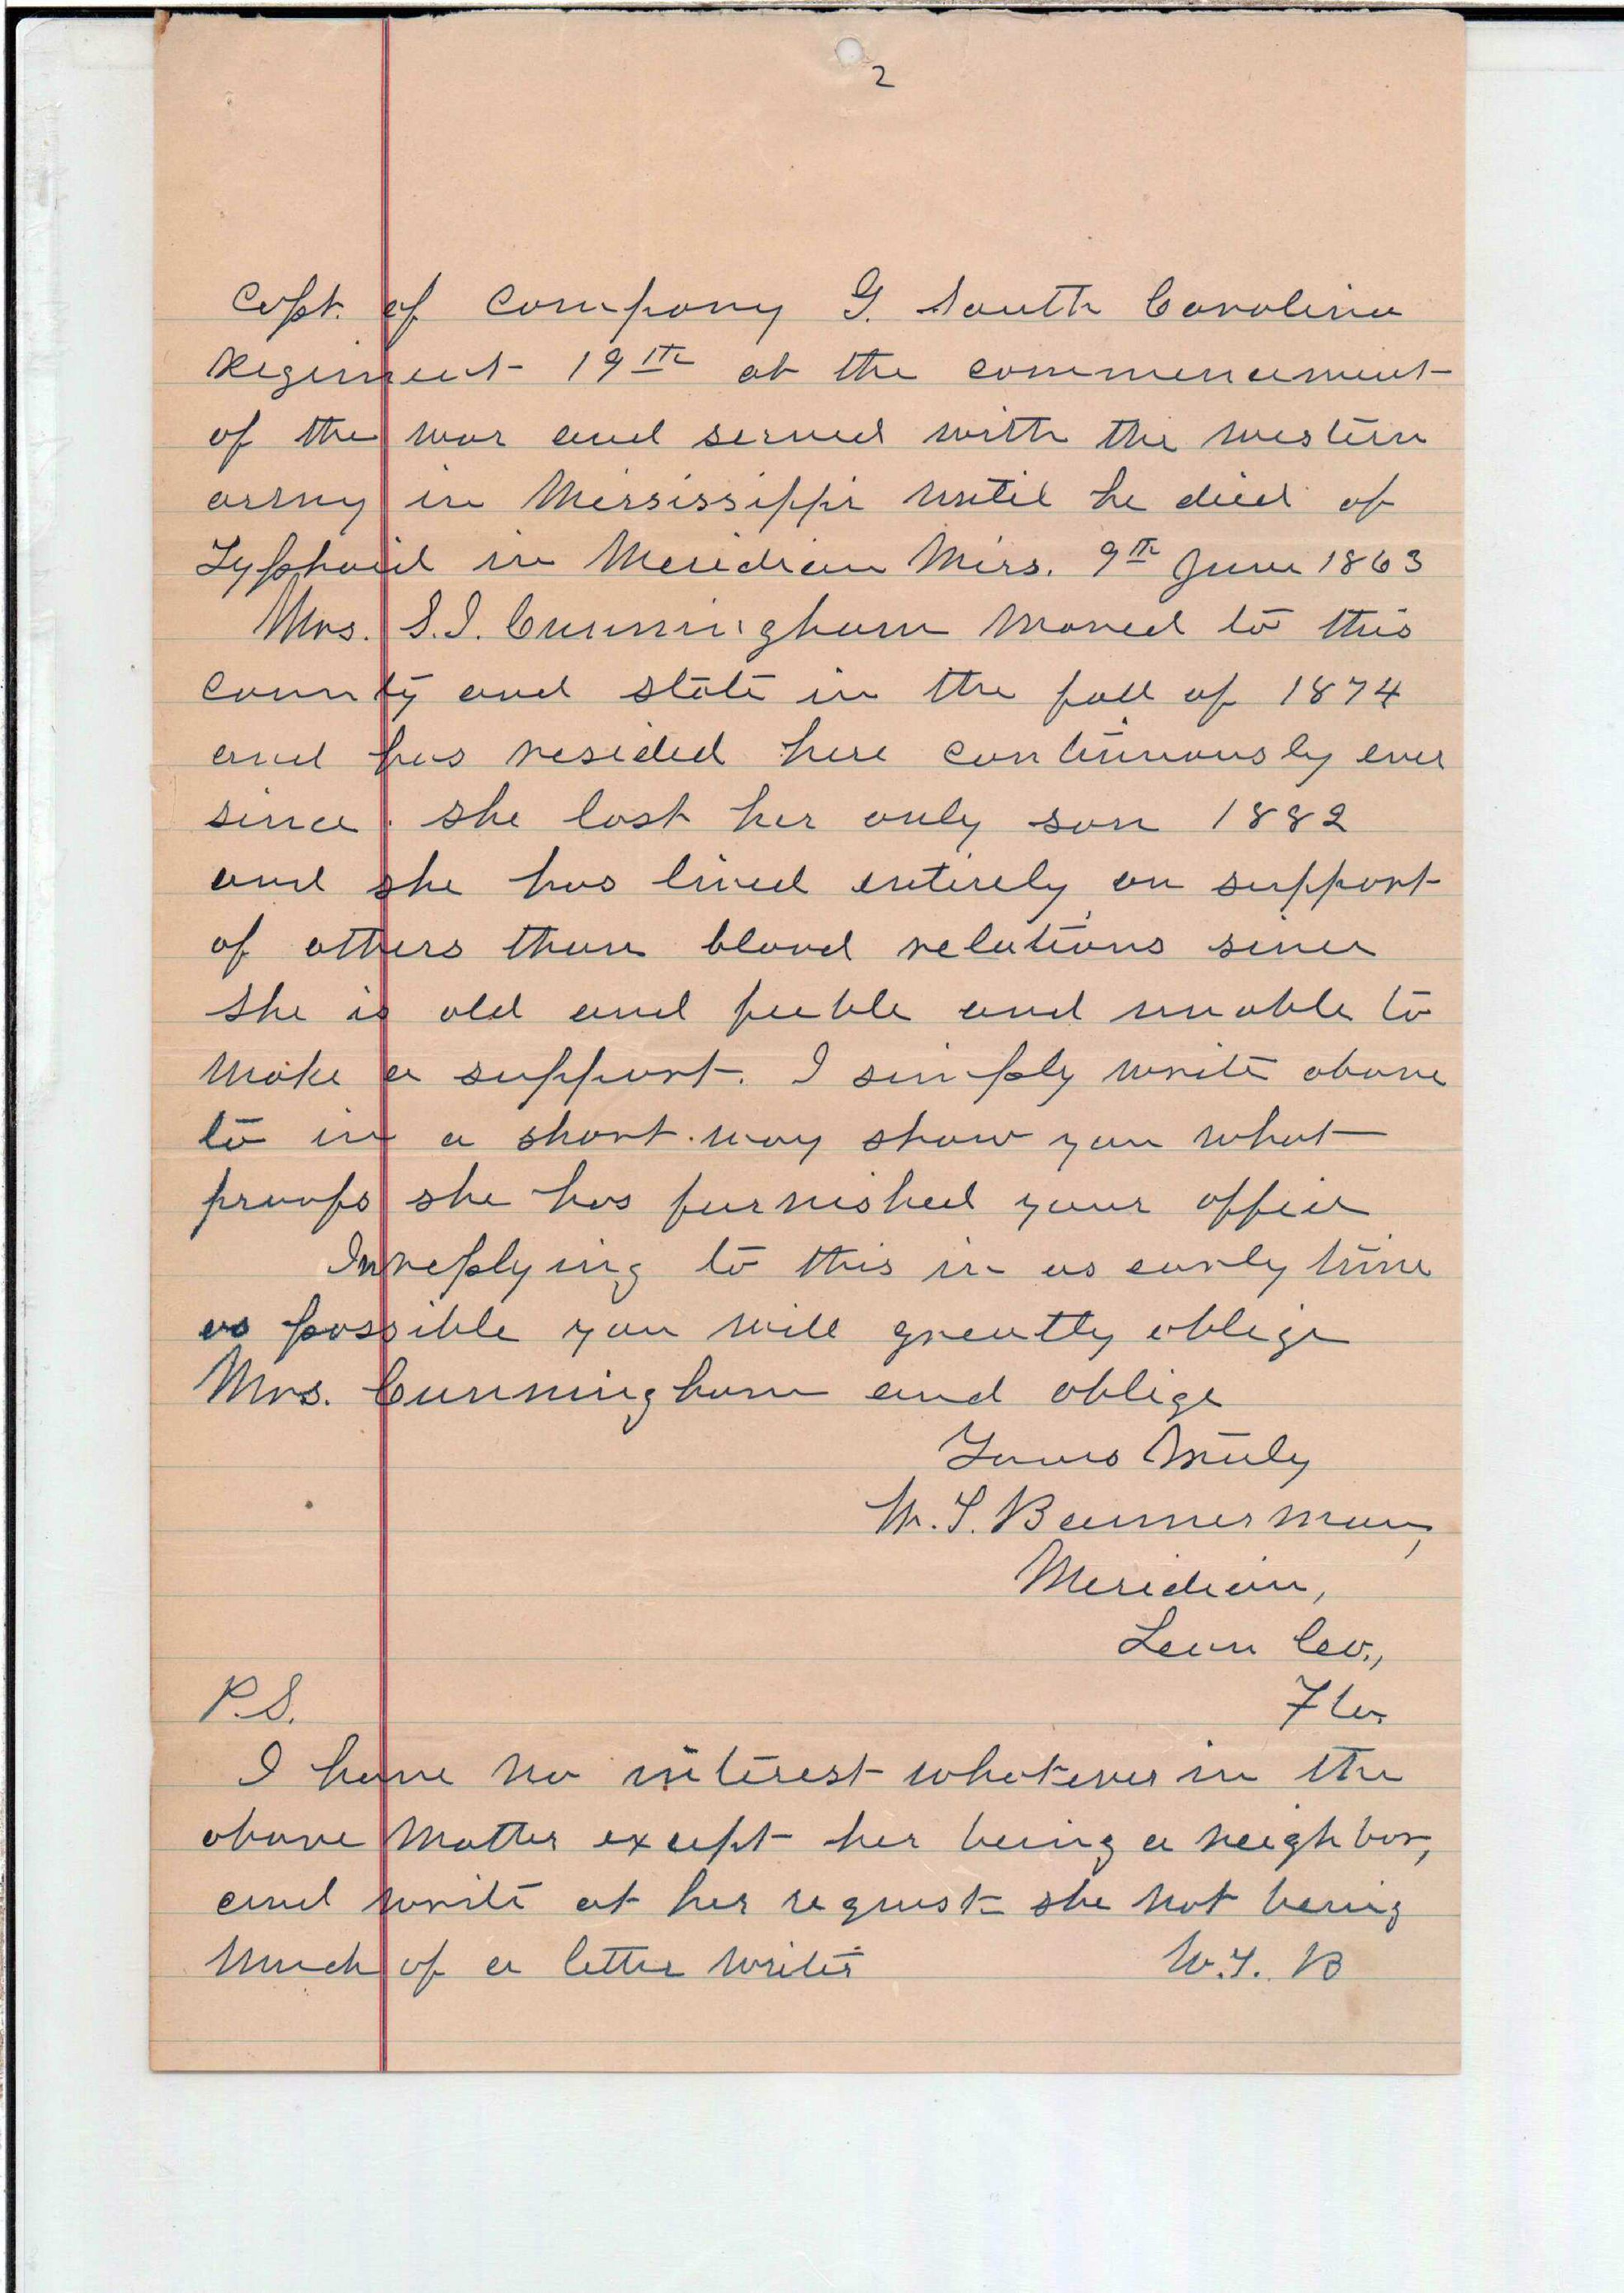 2
Capt. of Company G. South Carolina
Regiment 19th at the commencement
of the war and served with the western
army in Mississippi until he died of
Typhoid in Meridian Miss. 9th June 1863
Mrs. S.I. Cunningham moved to this
county and state in the fall of 1874
and has resided here continuously ever
since. she lost her only son 1882
and she has lived entirely on support
of others than blood relations since
she is old and feeble and unable to
make a support. I simply write above
to in a short way show you what
proofs she has furnished your office
In replying to this in as early time
as possible you will greatly oblige
Mrs. Cunningham and oblige
Yours Truly
W.T. Bannerman,
Meridian,
Leon Co.,
P.S.
Fla
I have no interest whatever in the
above matter except her being a neighbor,
and write at her request she not being
much of a letter writer W.T. B